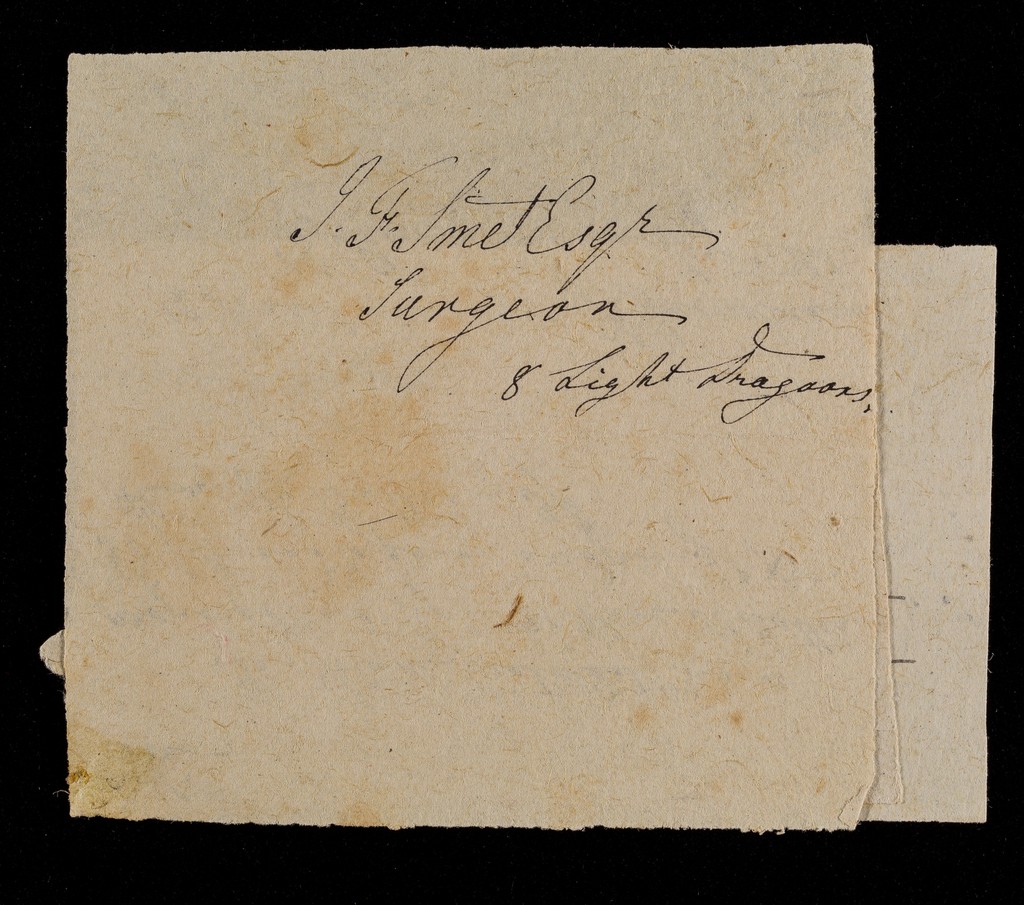 J. F. Smet Esqr
Surgeon
8 Light Dragoons,